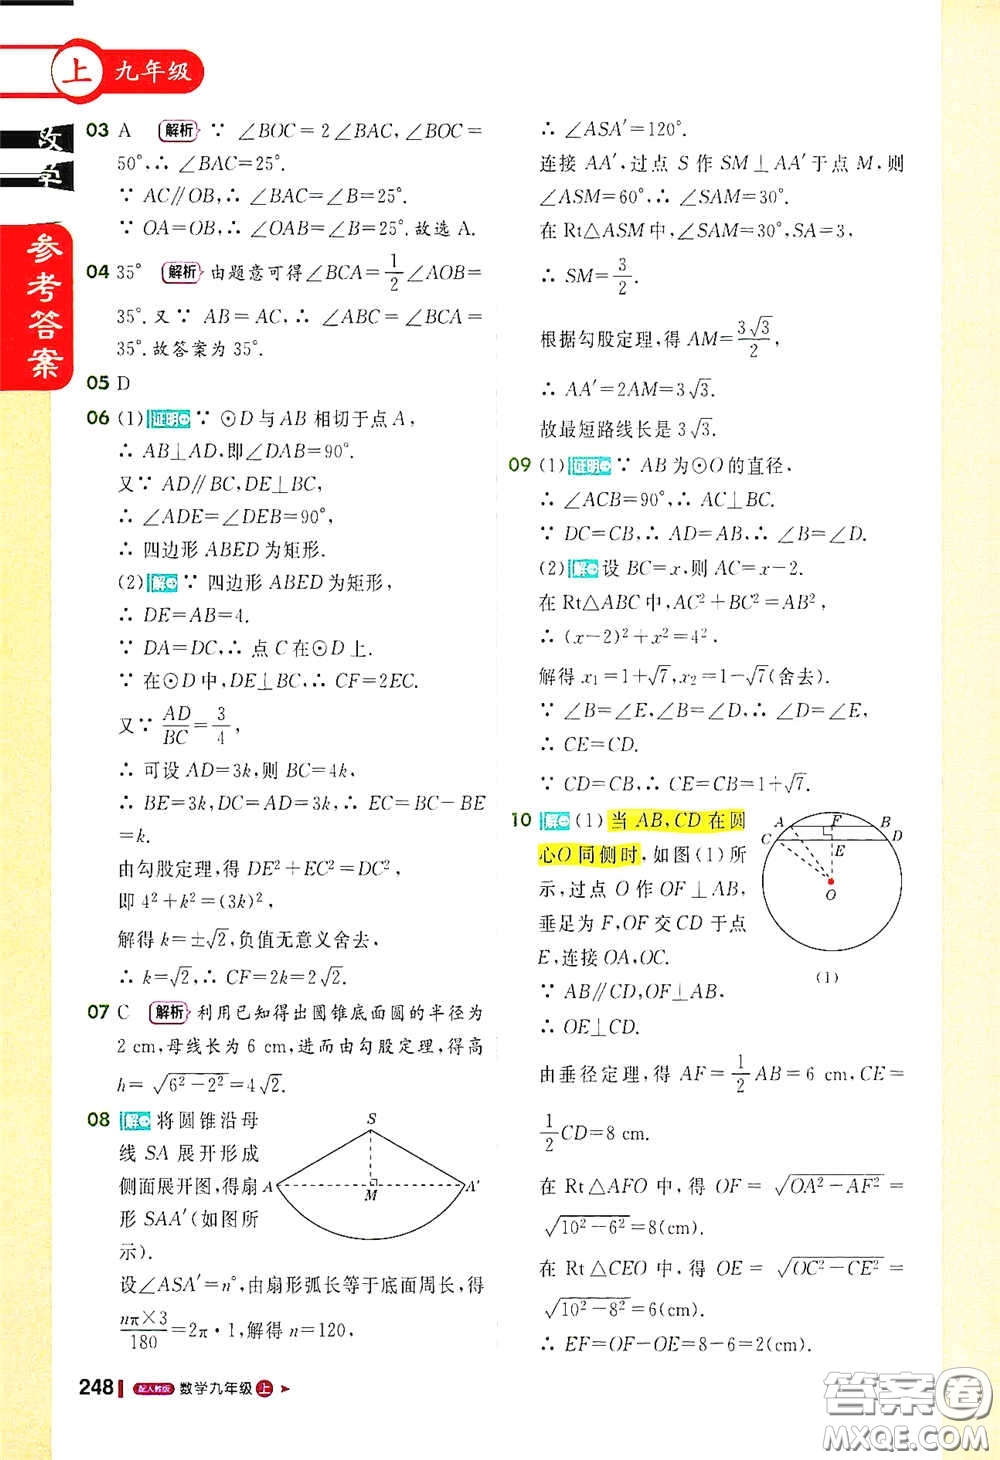 上 九年级
数学
参考答案
03 A 解析 ∵ ∠BOC=2∠BAC,∠BOC=
50°,∴ ∠BAC=25°.
∵ AC∥OB,∴ ∠BAC=∠B=25°.
∵ OA=OB,∴ ∠OAB=∠B=25°.故选 A.
04 35° 解析 由题意可得∠BCA=1/2∠AOB=
35°.又∵ AB=AC,∴ ∠ABC=∠BCA=
35°.故答案为 35°.
05 D
06 (1)证明 ∵ ⊙D 与 AB 相切于点 A,
∴ AB⊥AD,即∠DAB=90°.
又∵ AD∥BC,DE⊥BC,
∴ ∠ADE=∠DEB=90°,
∴ 四边形 ABED 为矩形.
(2)解 ∵ 四边形 ABED 为矩形,
∴ DE=AB=4.
∵ DA=DC,∴ 点 C 在⊙D 上.
∵ 在⊙D 中,DE⊥BC,∴ CF=2EC.
又∵ AD/BC=3/4,
∴ 可设 AD=3k,则 BC=4k,
∴ BE=3k,DC=AD=3k,∴ EC=BC−BE
=k.
由勾股定理,得 DE²+EC²=DC²,
即 4²+k²=(3k)²,
解得 k=±√2,负值无意义舍去,
∴ k=√2,∴ CF=2k=2√2.
07 C 解析 利用已知得出圆锥底面圆的半径为
2 cm,母线长为 6 cm,进而由勾股定理,得高
h=√(6²−2²)=4√2.
08 解 将圆锥沿母
线 SA 展开形成
侧面展开图,得扇
形 SAA′(如图所
示).
S
A
M
A′
设∠ASA′=n°,由扇形弧长等于底面周长,得
nπ×3/180=2π·1,解得 n=120,
∴ ∠ASA′=120°.
连接 AA′,过点 S 作 SM⊥AA′于点 M,则
∠ASM=60°,∴ ∠SAM=30°.
在 Rt△ASM 中,∠SAM=30°,SA=3,
∴ SM=3/2.
根据勾股定理,得 AM=3√3/2,
∴ AA′=2AM=3√3.
故最短路线长是 3√3.
09 (1)证明 ∵ AB 为⊙O 的直径,
∴ ∠ACB=90°,∴ AC⊥BC.
∵ DC=CB,∴ AD=AB,∴ ∠B=∠D.
(2)解 设 BC=x,则 AC=x−2.
在 Rt△ABC 中,AC²+BC²=AB²,
∴ (x−2)²+x²=4².
解得 x₁=1+√7,x₂=1−√7(舍去).
∵ ∠B=∠E,∠B=∠D,∴ ∠D=∠E,
∴ CE=CD.
∵ CD=CB,∴ CE=CB=1+√7.
10 解 (1)当 AB,CD 在圆
心 O 同侧时,如图(1)所
示,过点 O 作 OF⊥AB,
垂足为 F,OF 交 CD 于点
E,连接 OA,OC.
A
F
B
C
E
D
O
(1)
∵ AB∥CD,OF⊥AB,
∴ OE⊥CD.
由垂径定理,得 AF=1/2AB=6 cm,CE=
1/2CD=8 cm.
在 Rt△AFO 中,得 OF=√(OA²−AF²)=
√(10²−6²)=8(cm).
在 Rt△CEO 中,得 OE=√(OC²−CE²)=
√(10²−8²)=6(cm).
∴ EF=OF−OE=8−6=2(cm).
248 配人教版 数学九年级 上
答案卷
MXQE.COM